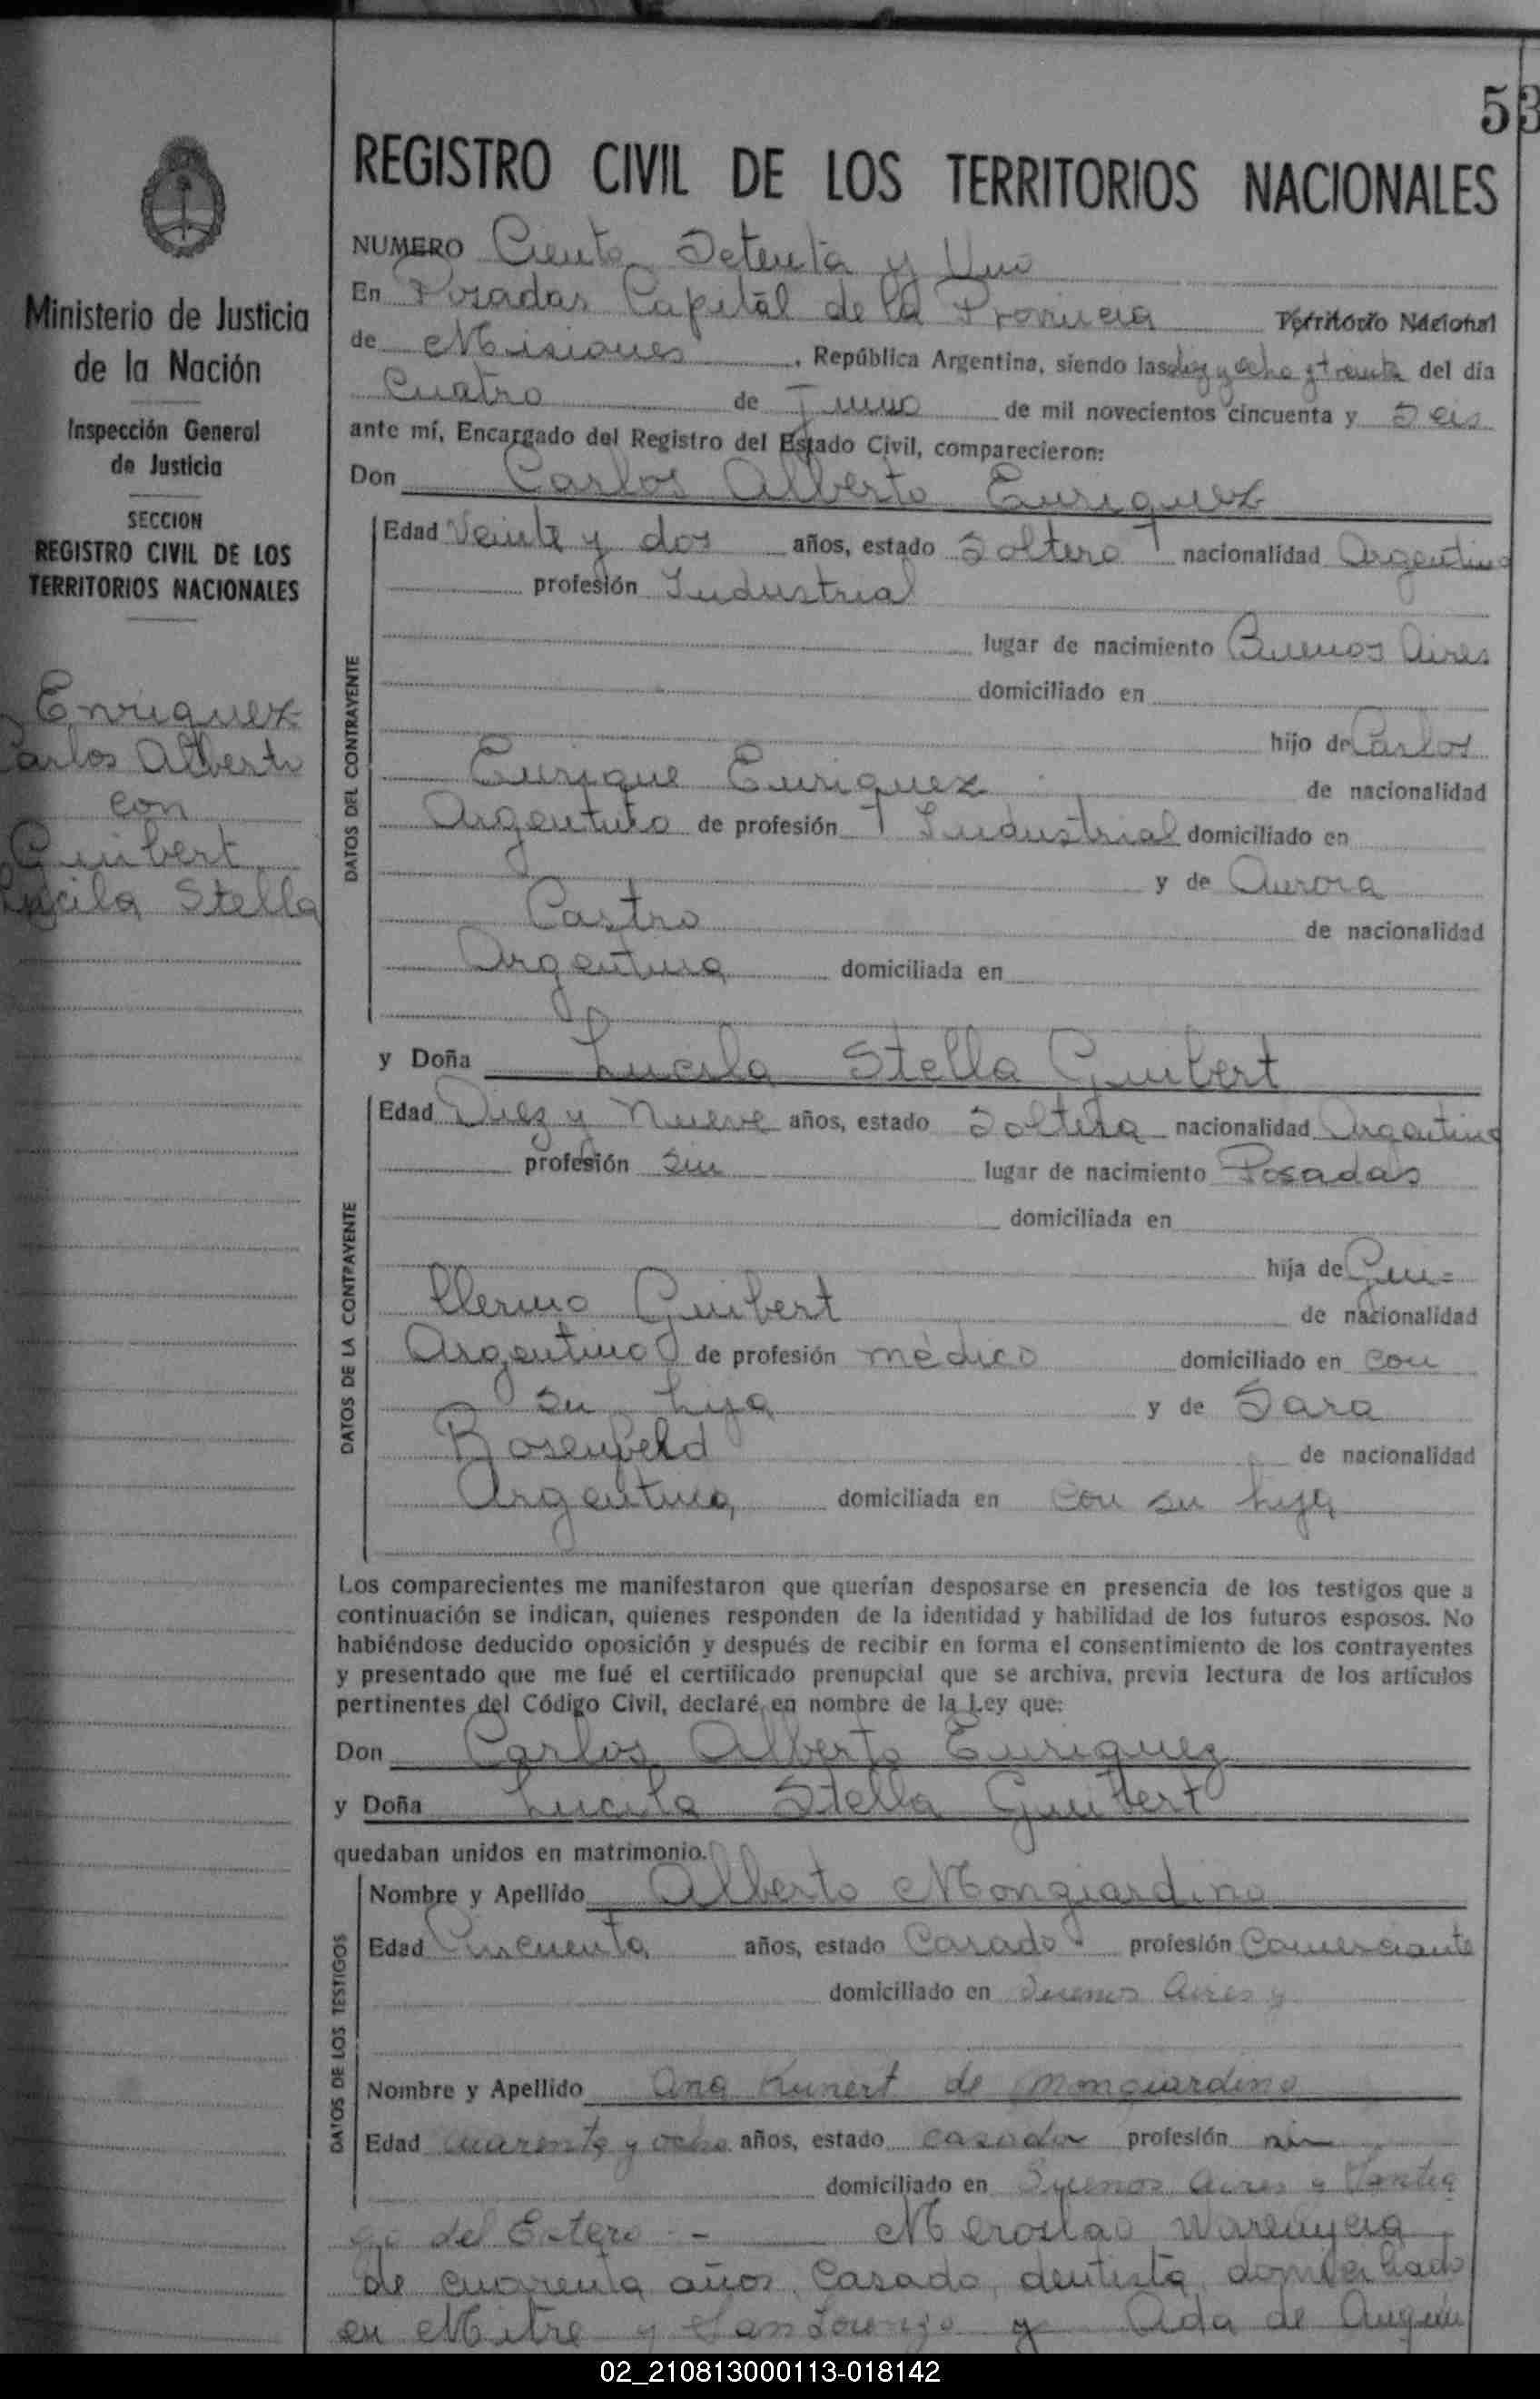 53
REGISTRO CIVIL DE LOS TERRITORIOS NACIONALES
NUMERO Ciento Setenta y Uno
En Posadas Capital de la Provincia Territorio Nacional
de Misiones, República Argentina, siendo las diez y ocho y treinta del día
Cuatro de Junio de mil novecientos cincuenta y Seis
ante mí, Encargado del Registro del Estado Civil, comparecieron:
Don Carlos Alberto Enriquez
Edad Veinte y dos años, estado Soltero nacionalidad Argentino
profesión Industrial
lugar de nacimiento Buenos Aires
domiciliado en
hijo de Carlos
Enrique Enriquez de nacionalidad
Argentino de profesión Industrial domiciliado en
y de Aurora
Castro de nacionalidad
Argentina domiciliada en
DATOS DEL CONTRAYENTE
y Doña Lucila Stella Guibert
Edad Diez y Nueve años, estado Soltera nacionalidad Argentina
profesión sin lugar de nacimiento Posadas
domiciliada en
hija de Gui=
llermo Guibert de nacionalidad
Argentino de profesión médico domiciliado en con
su hija y de Sara
Rosenfeld de nacionalidad
Argentina domiciliada en con su hija
DATOS DE LA CONTRAYENTE
Los comparecientes me manifestaron que querían desposarse en presencia de los testigos que a
continuación se indican, quienes responden de la identidad y habilidad de los futuros esposos. No
habiéndose deducido oposición y después de recibir en forma el consentimiento de los contrayentes
y presentado que me fué el certificado prenupcial que se archiva, previa lectura de los artículos
pertinentes del Código Civil, declaré en nombre de la Ley que:
Don Carlos Alberto Enriquez
y Doña Lucila Stella Guibert
quedaban unidos en matrimonio.
Nombre y Apellido Alberto Mongiardino
Edad Cincuenta años, estado Casado profesión Comerciante
domiciliado en Buenos Aires y
Nombre y Apellido Ana Kunert de Mongiardino
Edad cuarenta y ocho años, estado casada profesión sin
domiciliado en Buenos Aires y Santia
go del Estero - Meroslao
de cuarenta años, Casado, dentista, domiciliado
en Mitre y San Lorenzo y Ada de
DATOS DE LOS TESTIGOS
Ministerio de Justicia
de la Nación
Inspección General
de Justicia
SECCION
REGISTRO CIVIL DE LOS
TERRITORIOS NACIONALES
Enriquez
Carlos Alberto
con
Guibert
Lucila Stella
02_210813000113-018142